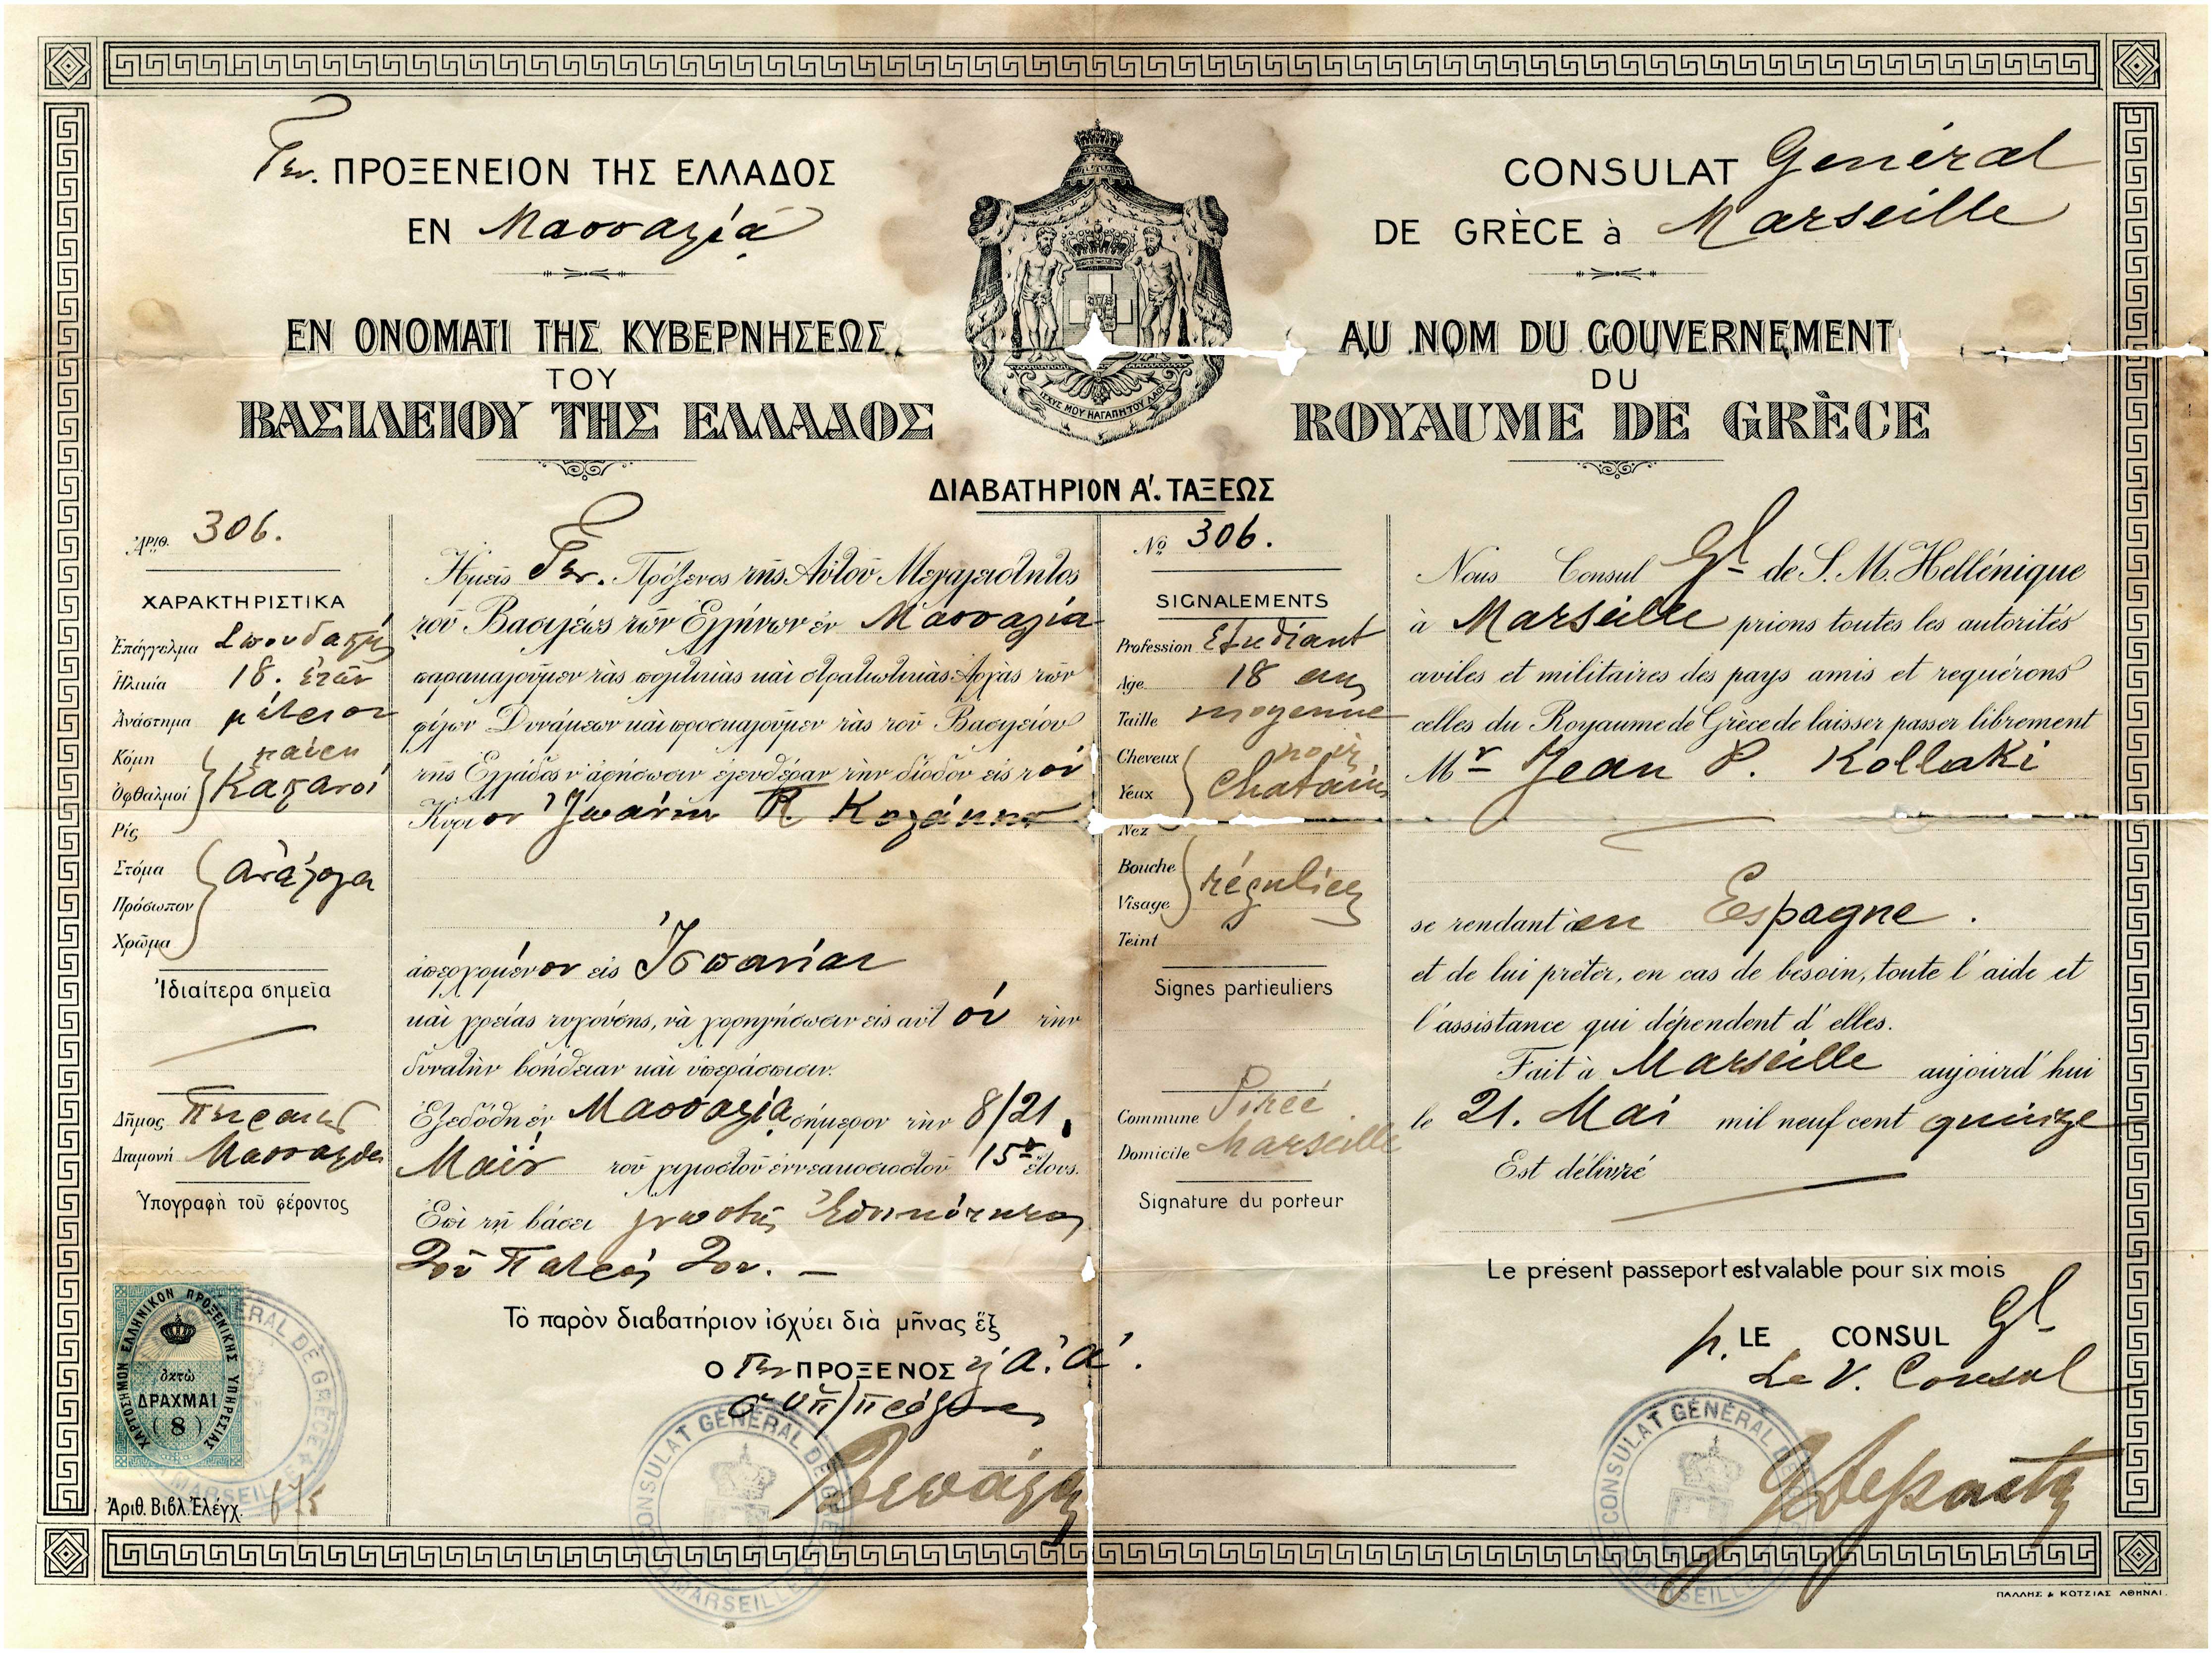 Γεν. ΠΡΟΞΕΝΕΙΟΝ ΤΗΣ ΕΛΛΑΔΟΣ
ΕΝ Μασσαλία
ΕΝ ΟΝΟΜΑΤΙ ΤΗΣ ΚΥΒΕΡΝΗΣΕΩΣ
ΤΟΥ
ΒΑΣΙΛΕΙΟΥ ΤΗΣ ΕΛΛΑΔΟΣ
CONSULAT Général
DE GRÈCE à Marseille
AU NOM DU GOUVERNEMENT
DU
ROYAUME DE GRÈCE
ΙΣΧΥΣ ΜΟΥ Η ΑΓΑΠΗ ΤΟΥ ΛΑΟΥ
ΔΙΑΒΑΤΗΡΙΟΝ Α΄. ΤΑΞΕΩΣ
ἈΡΙΘ. 306.
ΧΑΡΑΚΤΗΡΙΣΤΙΚΑ
Ἐπάγγελμα Σπουδαστής
Ἡλικία 18. ἐτῶν
Ἀνάστημα μέτριον
Κόμη μαύρη
Ὀφθαλμοί Καστανοί
Ρίς
Στόμα ἀνάλογα
Πρόσωπον
Χρῶμα
Ἰδιαίτερα σημεῖα
Δῆμος Πειραιῶς
Διαμονή Μασσαλία
Ὑπογραφὴ τοῦ φέροντος
ΧΑΡΤΟΣΗΜΟΝ ΕΛΛΗΝΙΚΟΝ ΠΡΟΞΕΝΙΚΗΣ ΥΠΗΡΕΣΙΑΣ
ὀκτὼ
ΔΡΑΧΜΑΙ
(8)
Ἀριθ. Βιβλ. Ἐλέγχ. 675
Ἡμεῖς Γεν. Πρόξενος τῆς Αὐτοῦ Μεγαλειότητος
τοῦ Βασιλέως τῶν Ἑλλήνων ἐν Μασσαλία
παρακαλοῦμεν τὰς πολιτικὰς καὶ στρατιωτικὰς Ἀρχὰς τῶν
φίλων Δυνάμεων καὶ προσκαλοῦμεν τὰς τοῦ Βασιλείου
τῆς Ἑλλάδος ν' ἀφήσωσιν ἐλευθέραν τὴν δίοδον εἰς τὸν
Κύριον Ἰωάννην Π. Κολάκην
ἀπερχόμενον εἰς Ἱσπανίαν
καὶ χρείας τυχούσης, νὰ χορηγήσωσιν εἰς αὐτὸν τὴν
δυνατὴν βοήθειαν καὶ ὑπεράσπισιν.
Ἐξεδόθη ἐν Μασσαλίᾳ σήμερον τὴν 8/21
Μαΐου τοῦ χιλιοστοῦ ἐννεακοσιοστοῦ 15ου ἔτους.
Ἐπὶ τῇ βάσει γνωστῆς ἐθνικότητος
τοῦ Πατρός του. —
Τὸ παρὸν διαβατήριον ἰσχύει διὰ μῆνας ἕξ
Ο Γεν ΠΡΟΞΕΝΟΣ κ. α. α.
ὁ ὑπ/πρόξενος
CONSULAT GÉNÉRAL DE GRÈCE
MARSEILLE
Nº 306.
SIGNALEMENTS
Profession Etudiant
Age 18 ans
Taille moyenne
Cheveux noirs
Yeux Chatains
Nez
Bouche régulier
Visage
Teint
Signes particuliers
Commune Pirée
Domicile Marseille
Signature du porteur
Nous Consul Gl de S. M. Hellénique
à Marseille prions toutes les autorités
civiles et militaires des pays amis et requérons
celles du Royaume de Grèce de laisser passer librement
Mr Jean P. Kollaki
se rendant en Espagne.
et de lui prêter, en cas de besoin, toute l'aide et
l'assistance qui dépendent d'elles.
Fait à Marseille aujourd'hui
le 21. Mai mil neuf cent quinze
Est délivré
Le présent passeport est valable pour six mois
p. LE CONSUL Gl
Le V. Consul
CONSULAT GÉNÉRAL DE GRÈCE
MARSEILLE
ΠΑΛΛΗΣ & ΚΟΤΖΙΑΣ ΑΘΗΝΑΙ.